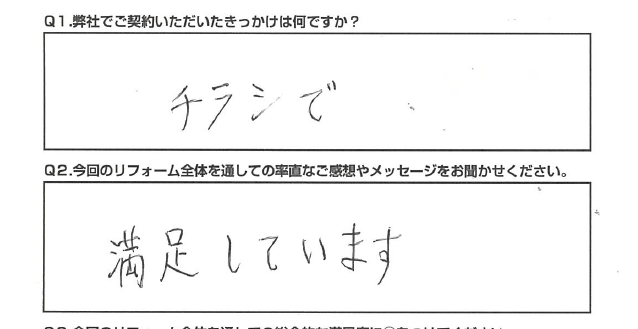 Q1.弊社でご契約いただいたきっかけは何ですか？
チラシで
Q2.今回のリフォーム全体を通しての率直なご感想やメッセージをお聞かせください。
満足しています